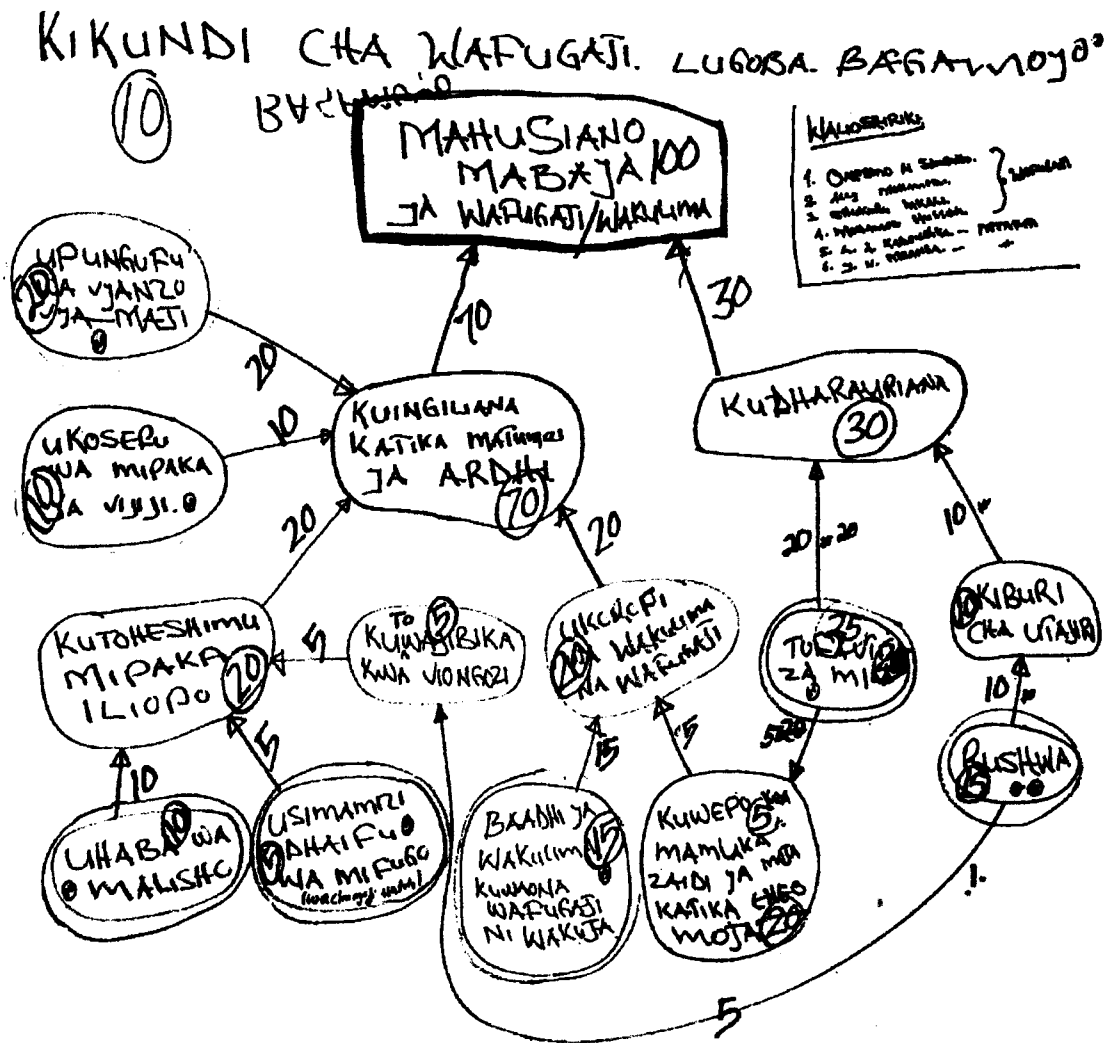 KIKUNDI CHA WAFUGAJI. LUGOBA. BAGAMOYO
10
MAHUSIANO
MABAYA 100
YA WAFUGAJI/WAKULIMA
WALIOSHIRIKI
1.
2.
3.
4.
5.
6.
WAFUGAJI
70
30
UPUNGUFU
20 WA VYANZO
VYA MAJI
20
UKOSEFU
WA MIPAKA
10 YA VIJIJI.
10
KUINGILIANA
KATIKA MATUMIZI
YA ARDHI
70
KUDHARAURIANA
30
20
20
20
10
KUTOHESHIMU
MIPAKA
ILIOPO 20
5
TO 5
KUWAJIBIKA
KWA VIONGOZI
UKOROFI
20 WA WAKULIMA
NA WAFUGAJI
25
ZA MI
10 KIBURI
CHA UTAJIRI
10
5
15
5
10
UHABA 10 WA
MALISHO
USIMAMIZI
5 DHAIFU
WA MIFUGO
BAADHI YA
WAKULIMA 15
KUWAONA
WAFUGAJI
NI WAKUJA
KUWEPO KWA
5
MAMLAKA
ZAIDI YA MOJA
KATIKA ENEO
MOJA 20
RUSHWA
15
5